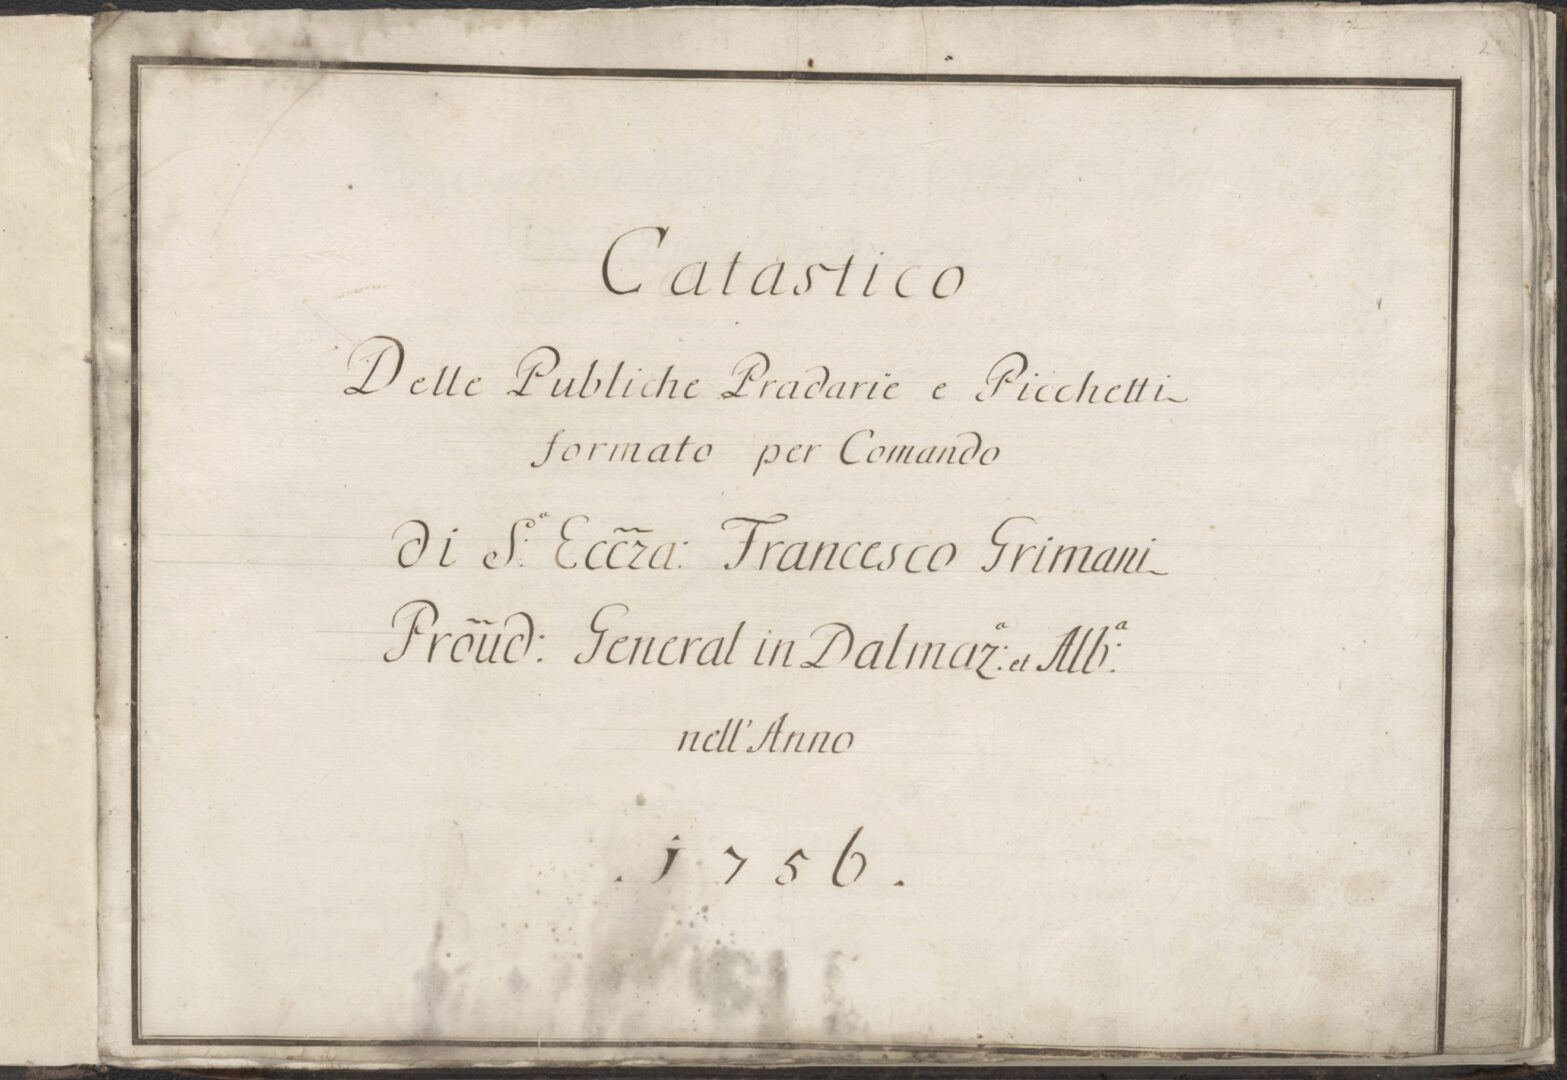 2
Catastico
Delle Publiche Pradarie e Picchetti
formato per Comando
di S.ª Ecc̃z̃a: Francesco Grimani
Prõũd: General in Dalmaz:ª et Alb:ª
nell'Anno
.1756.